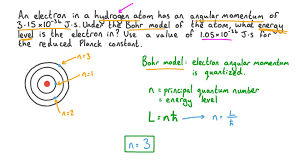 An electron in a hydrogen atom has an angular momentum of
3.15×10⁻³⁴ J·s. Under the Bohr model of the atom, what energy
level is the electron in? Use a value of 1.05×10⁻³⁴ J·s for
the reduced Planck constant.
n=3
n=1
n=2
Bohr model: electron angular momentum
is quantized.
n = principal quantum number
= energy level
L = nħ → n = L/ħ
n = 3